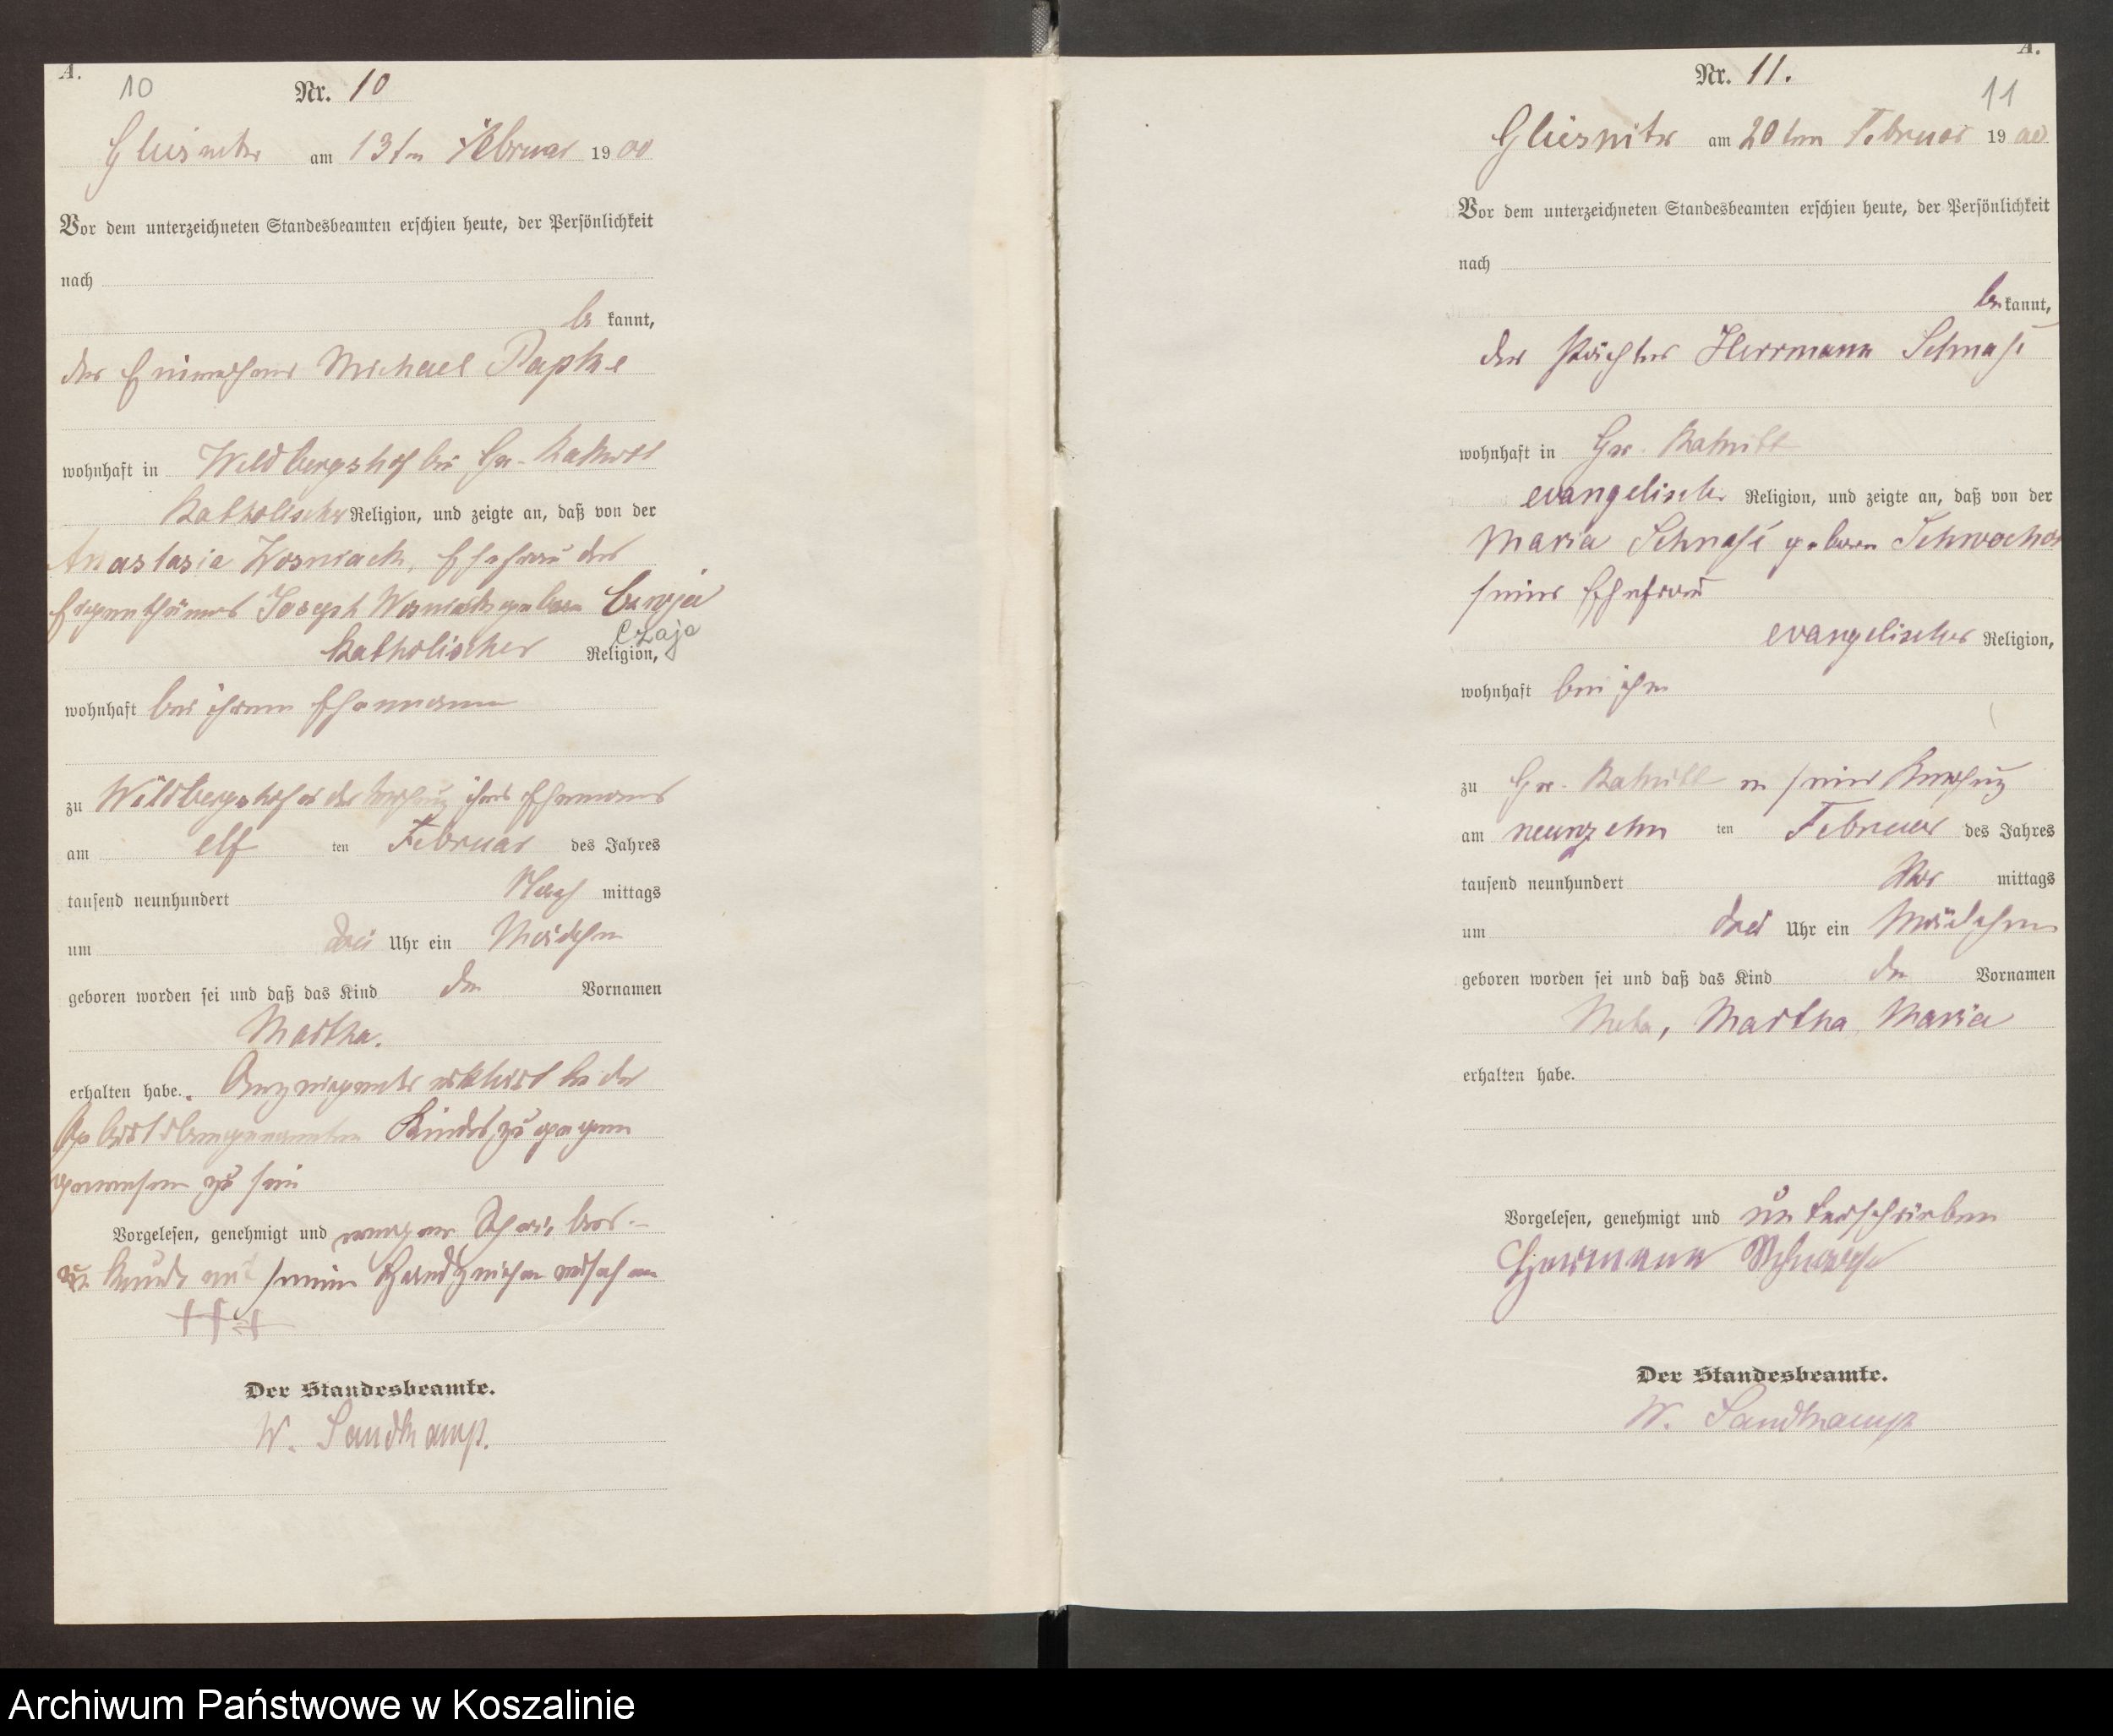 A.
10
Nr. 10
am 13 ten Februar 1900
Vor dem unterzeichneten Standesbeamten erschien heute, der Persönlichkeit
nach
be kannt,
der Michael Papke
wohnhaft in Wildbergshof bei Gr. Rakitt
katholischer Religion, und zeigte an, daß von der
Anastasia Wosniack, Ehefrau des
Eigenthümers Joseph Wosniack geboren
Czaja
katholischer Religion,
wohnhaft bei ihrem Ehemann
zu Wildbergshof in der Behausung ihres Ehemannes
am elf ten Februar des Jahres
tausend neunhundert Nach mittags
um drei Uhr ein Mädchen
geboren worden sei und daß das Kind den Vornamen
Martha.
erhalten habe. Anzeigender erklärt bei der
Geburt obengenannten Kindes zugegen
gewesen zu sein
Vorgelesen, genehmigt und wegen Schreibens-
unkunde mit seinem Handzeichen versehen
+++
Der Standesbeamte.
W. Sandkamp.
A.
Nr. 11.
11
am 20 ten Februar 1900
Vor dem unterzeichneten Standesbeamten erschien heute, der Persönlichkeit
nach
be kannt,
der Pächter Herrmann Schnase
wohnhaft in Gr. Rakitt
evangelischer Religion, und zeigte an, daß von der
Maria Schnase geboren
seiner Ehefrau
evangelischer Religion,
wohnhaft bei ihm
zu Gr. Rakitt in seiner Behausung
am neunzehn ten Februar des Jahres
tausend neunhundert Vor mittags
um drei Uhr ein Mädchen
geboren worden sei und daß das Kind den Vornamen
Meta, Martha Maria
erhalten habe.
Vorgelesen, genehmigt und unterschrieben
Herrmann Schnase
Der Standesbeamte.
W. Sandkamp
Archiwum Państwowe w Koszalinie